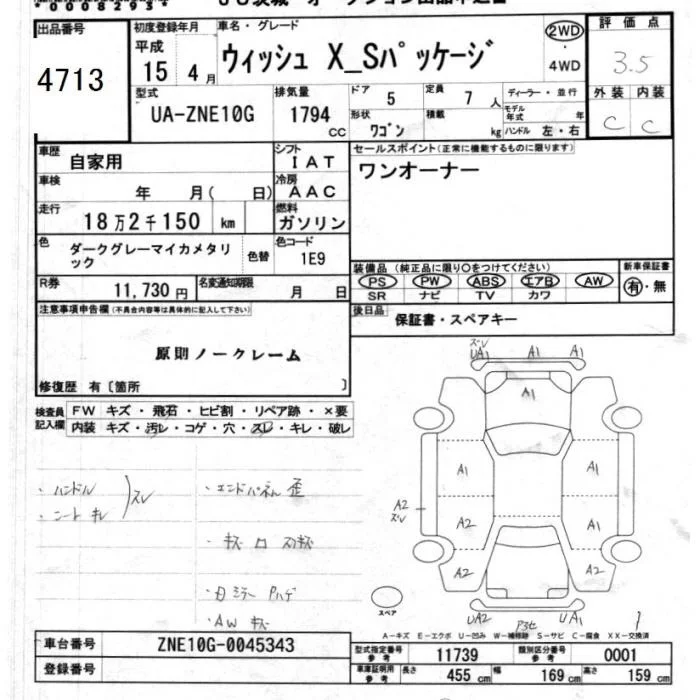 出品番号
4713
初度登録年月
平成
15 年 4 月
車名・グレード
ウィッシュ X_Sパッケージ
2WD
・
4WD
評価点
3.5
外装 内装
C C
型式
UA-ZNE10G
排気量
1794 CC
ドア 5
形状 ワゴン
定員 7 人
積載 kg
ディーラー・並行
モデル年式 年
ハンドル 左・右
車歴 自家用
シフト IAT
車検 年 月( 日)
冷房 AAC
走行 18万2千150 km
燃料 ガソリン
色 ダークグレーマイカメタリック
色替
色コード 1E9
R券 11,730 円
名変通知期限 月 日
セールスポイント(正常に機能するものに限ります)
ワンオーナー
装備品(純正品に限り○をつけてください)
PS PW ABS エアB AW
SR ナビ TV カワ
新車保証書
有・無
後日品 保証書・スペアキー
注意事項申告欄(不具合内容等は具体的に記入して下さい)
原則ノークレーム
修復歴 有〔箇所 〕
検査員記入欄
FW キズ・飛石・ヒビ割・リペア跡・×要
内装 キズ・汚レ・コゲ・穴・スレ・キレ・破レ
・ハンドル
スレ
・エンドパネル歪
・AW キズ
UA1 A1 A1
A1
A1 A1
A2
A2 A1
A2 A2
UA2 UA1
スペア
A－キズ E－エクボ U－凹み W－補修跡 S－サビ C－腐食 XX－交換済
車台番号 ZNE10G-0045343
登録番号
型式指定番号 参考 11739
類別区分番号 参考 0001
車庫証明用 参考 長さ 455 cm 幅 169 cm 高さ 159 cm